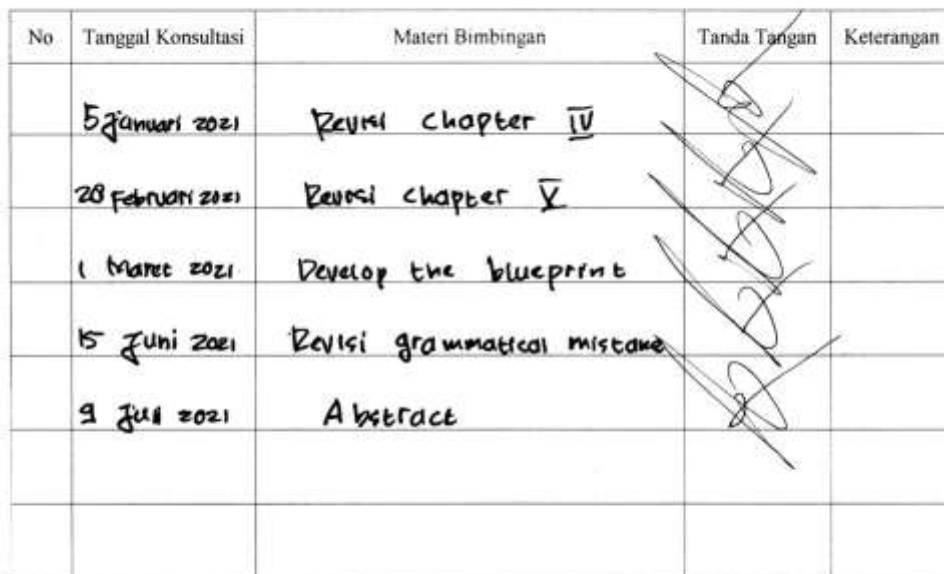 No Tanggal Konsultasi Materi Bimbingan Tanda Tangan Keterangan
5 Januari 2021 Revisi chapter IV
28 Februari 2021 Revisi chapter V
1 Maret 2021 Develop the blueprint
15 Juni 2021 Revisi grammatical mistake
9 Juli 2021 Abstract